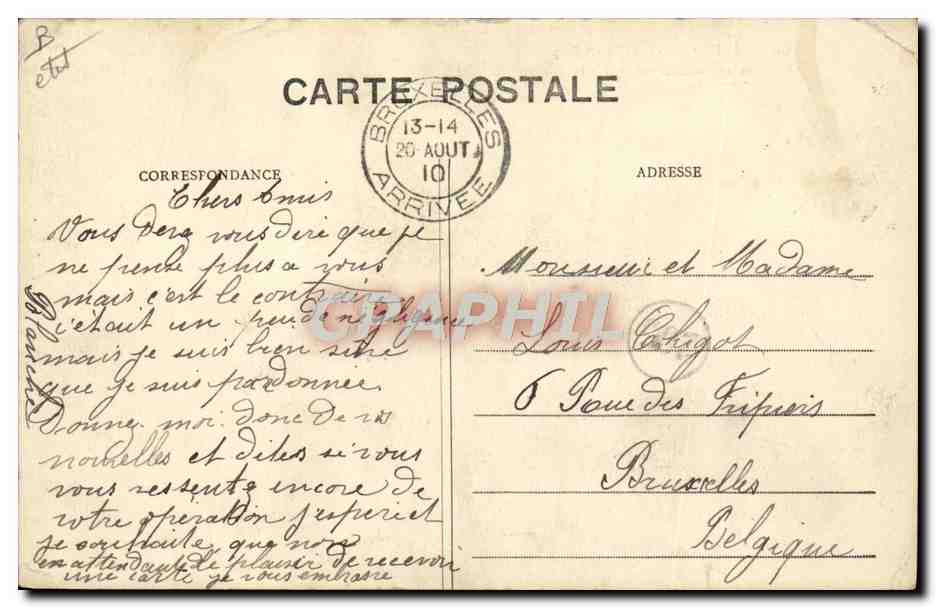 B
etet
CARTE POSTALE
BRUXELLES
13-14
20 AOUT
10
ARRIVEE
CORRESPONDANCE
ADRESSE
Chers Amis
Vous deve vous dire que je
ne pense plus a vous
mais c'est le contraire
c'était un peu de négligence
mais je suis bien sure
que je suis pardonnée
Donnez moi donc de vos
nouvelles et dites si vous
vous ressentez encore de
votre opération j'espère et
je souhaite que non
en attendant le plaisir de recevoir
une carte je vous embrasse
Blanche
Monsieur et Madame
Louis Chigot
6 Rue des Fripiers
Bruxelles
Belgique
CPAPHIL